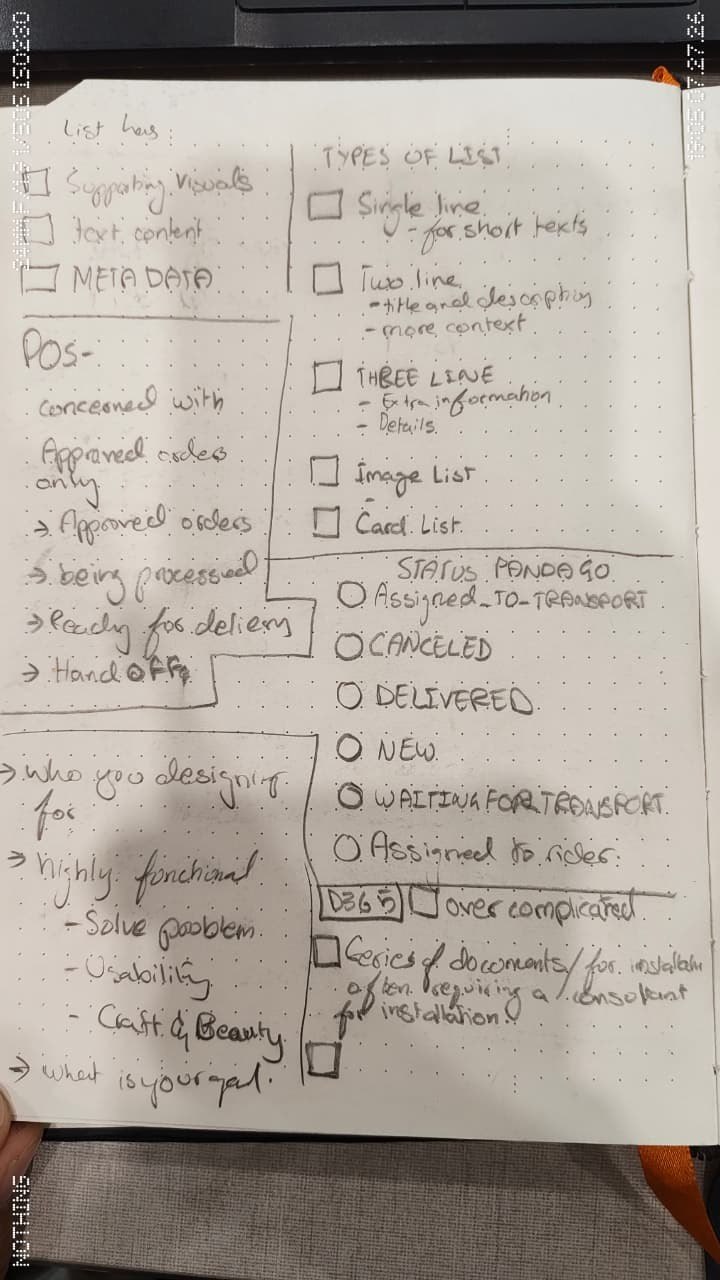 List has:
Supporting visuals
text content
META DATA
POS-
concerned with
Approved orders
only
→ Approved orders
→ being processed
→ Ready for delivery
→ Hand OFF
→ who you designing
for
→ highly functional
- Solve problem
- Usability
- Craft & Beauty
→ what is your goal.
TYPES OF LIST
Single line
- for short texts
Two line
- title and description
- more context
THREE LINE
- Extra information
- Details
Image List
Card List
STATUS PANDAGO
Assigned_TO_TRANSPORT
CANCELED
DELIVERED
NEW
WAITING FOR TRANSPORT
Assigned to rider.
D365 over complicated
Series of documents/for
often requiring a consultant
for installation.
NOTHING
19:05 07.27.26